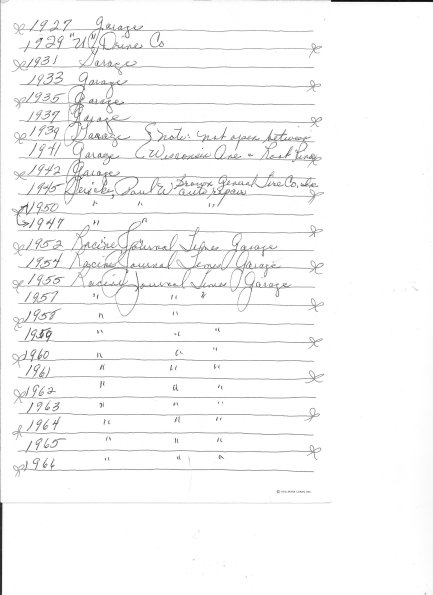 1927 Garage
1929 "U" Drive Co
1931 Garage
1933 Garage
1935 Garage
1937 Garage
1939 Garage note: not open between
1941 Garage Wisconsin Ave & Root River
1942 Garage
1945 Paul W Brown General Tire Co, Inc
auto repair
1950 " " "
1947 " "
1952 Racine Journal Times Garage
1954 Racine Journal Times Garage
1955 Racine Journal Times Garage
1957 " " "
1958 " "
1959 " " "
1960 " " "
1961 " " "
1962 " " "
1963 " " "
1964 " " "
1965 " " "
1966 " " "